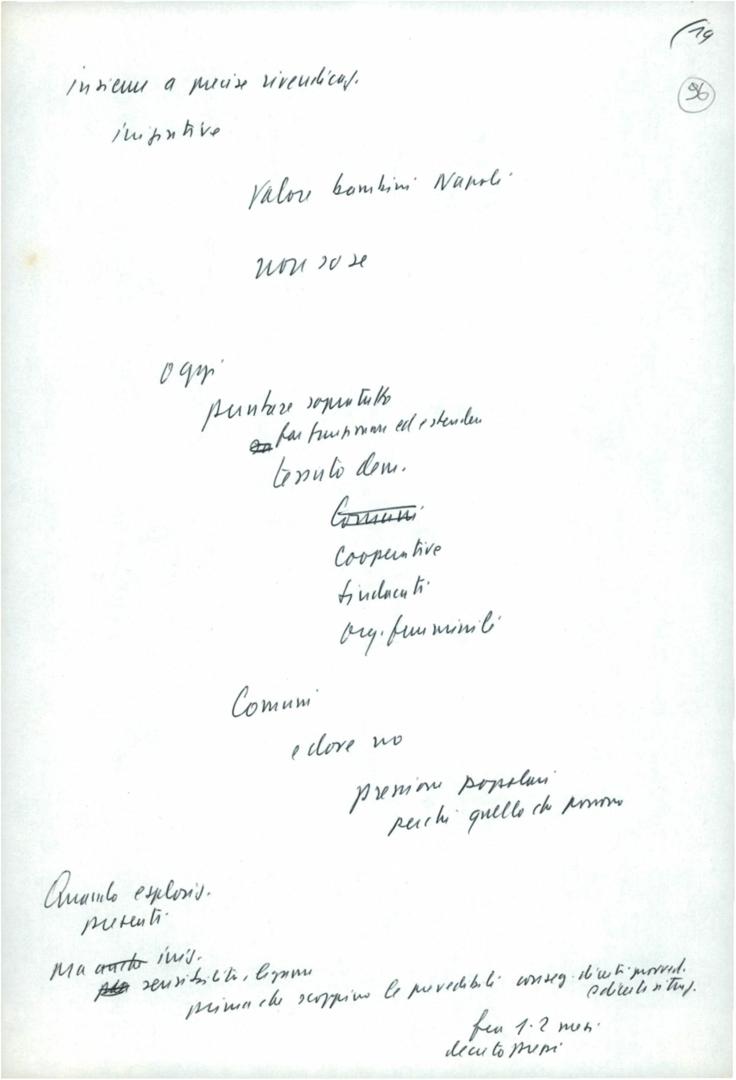 19
96
insieme a precise rivendicaz.
iniziative
Valore bambini Napoli
non so se
Oggi
puntare sopratutto
far funzionare ed estendere
tessuto dem.
Comuni
cooperative
sindacati
org. femminili
Comuni
e dove no
pressione popolari
perché quello che possono
Quando esplosio.
presenti
Ma anche iniz.
sensibilità, legame
prima che scoppino le prevedibili conseg. di certi provved.
e di certe situaz.
fra 1-2 mesi
decreto prezzi